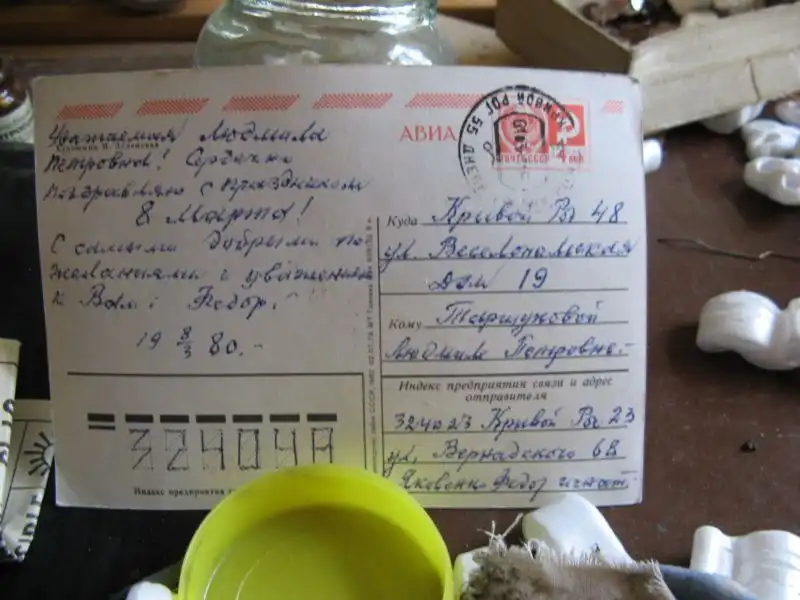 АВИА
КРИВОЙ РОГ 55 ДНЕ
ПОЧТА СССР
4
Уважаемая Людмила
Петровна! Сердечно
поздравляю с праздником
8 Марта!
С самыми добрыми по
желаниями и уважением
к Вам: Федор.
19 8/3 80.-
Куда Кривой Рог 48
ул. Веселопольская
дом 19
Кому
Людмиле Петровне.-
Индекс предприятия связи и адрес
отправителя
324023 Кривой Рог 23
ул. Вернадского 6В
Яковенко Федор
324048
Индекс предприятия